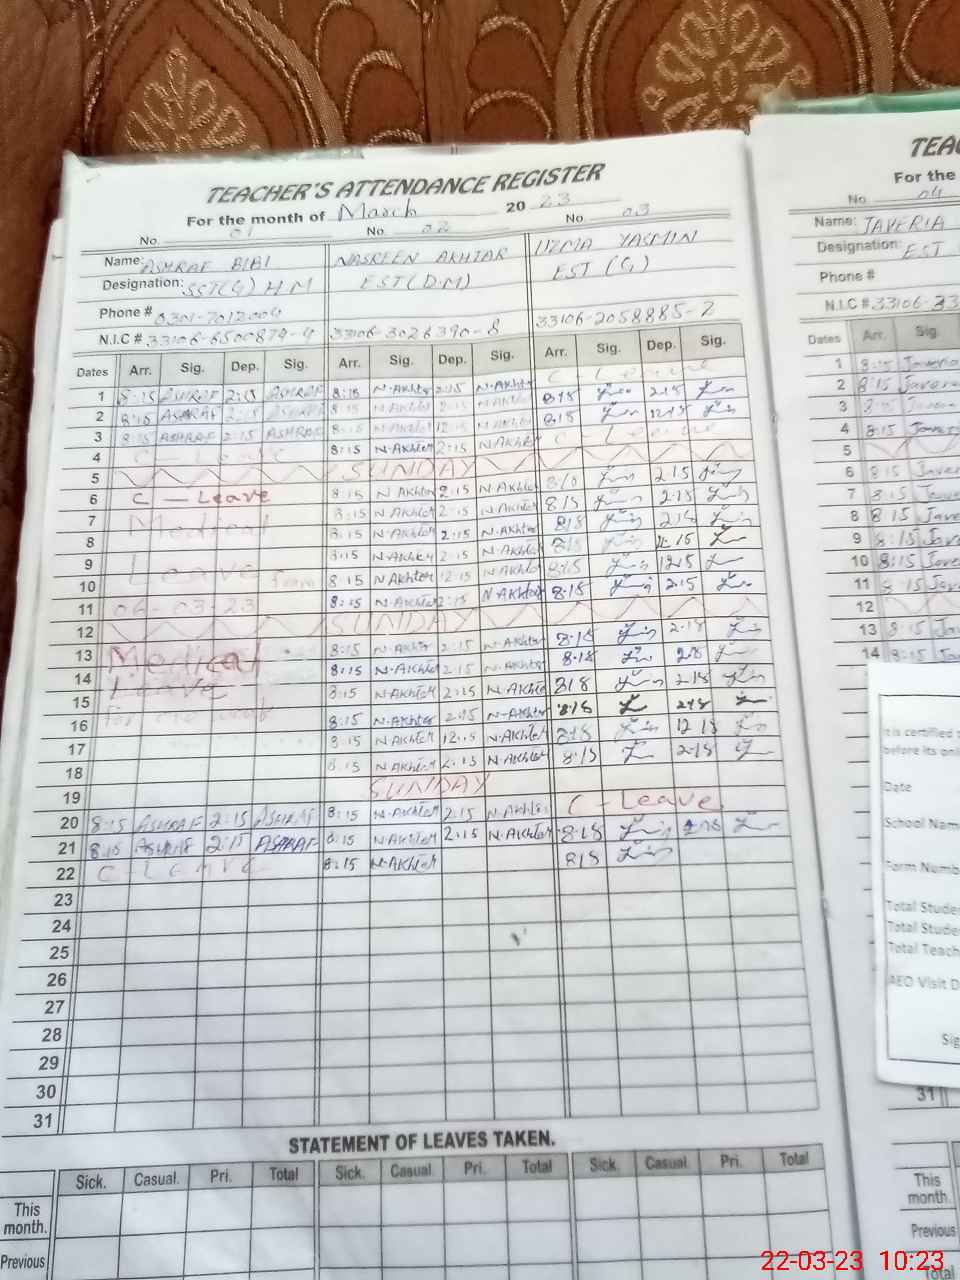 TEACHER'S ATTENDANCE REGISTER
For the month of March 2023
No 01 No. 02 No. 03
Name: ASHRAF BIBI NASREEN AKHTAR UZMA YASMIN
Designation: SST(G) H.M EST(D.M) EST (G)
Phone # 0301-7012004
N.I.C # 33106-6500879-4 33106-3026390-8 33106-2058885-2
Dates Arr. Sig. Dep. Sig. Arr. Sig. Dep. Sig. Arr. Sig. Dep. Sig.
1 8:15 ASHRAF 2:15 ASHRAF 8:15 N.Akhter 2:15 N.Akhter C-Leave
2 8:15 ASHRAF 2:15 8:15 N.Akhter 2:15 N.Akhter 8:15 2:15
3 8:15 ASHRAF 2:15 ASHRAF 8:15 N.Akhter 12:15 N.Akhter 8:15 12:15
4 C-Leave 8:15 N.Akhter 2:15 N.Akhter C-Leave
5 SUNDAY
6 C-Leave 8:15 N Akhter 2:15 N Akhter 2:15
7 Medical 8:15 N.Akhter 2:15 N.Akhter 8:15 2:15
8 8:15 N.Akhter 2:15 N.Akhter 8:15 2:15
9 Leave from 8:15 N.Akhter 2:15 N.Akhter 8:15 2:15
10 8:15 N Akhter 12:15 N Akhter 8:15 12:15
11 06-03-23 8:15 N.Akhter 2:15 N Akhter 8:15 2:15
12 SUNDAY
13 Medical 8:15 N.Akhter 2:15 N.Akhter 8:15 2:15
14 Leave 8:15 N.Akhter 2:15 N.Akhter 8:15
15 8:15 N.Akhter 2:15 N.Akhter 8:15 2:15
16 8:15 N.Akhter 2:15 N.Akhter 8:15 2:15
17 8:15 N.Akhter 12:15 N.Akhter 8:15 12:15
18 8:15 N.Akhter 2:15 N.Akhter 8:15 2:15
19 SUNDAY
20 8:15 ASHRAF 2:15 ASHRAF 8:15 N.Akhter 2:15 N.Akhter C-Leave
21 8:15 ASHRAF 2:15 ASHRAF 8:15 N.Akhter 2:15 N.Akhter 8:15
22 C-Leave 8:15 N.Akhter 8:15
23
24
25
26
27
28
29
30
31
STATEMENT OF LEAVES TAKEN.
Sick. Casual. Pri. Total Sick. Casual. Pri. Total Sick. Casual. Pri. Total
This month.
Previous
TEAC
For the
No. 04
Name: JAVERIA
Designation: EST
Phone #
N.I.C # 33106-
Dates Arr. Sig.
1 8:15 Javeria
2 8:15 Javeria
3 8:15 Javeria
4 8:15 Javeria
5
6 8:15 Javer
7 8:15 Jave
8 8:15 Jave
9 8:15 Jave
10 8:15 Jave
11 8:15 Jave
12
13 8:15 Jav
14 8:15 Jav
It is certified
before its
Date
School Nam
Form Numb
Total Stude
Total Stude
Total Teach
AEO Visit D
Sig
31
This month.
Previous
Total
22-03-23 10:23